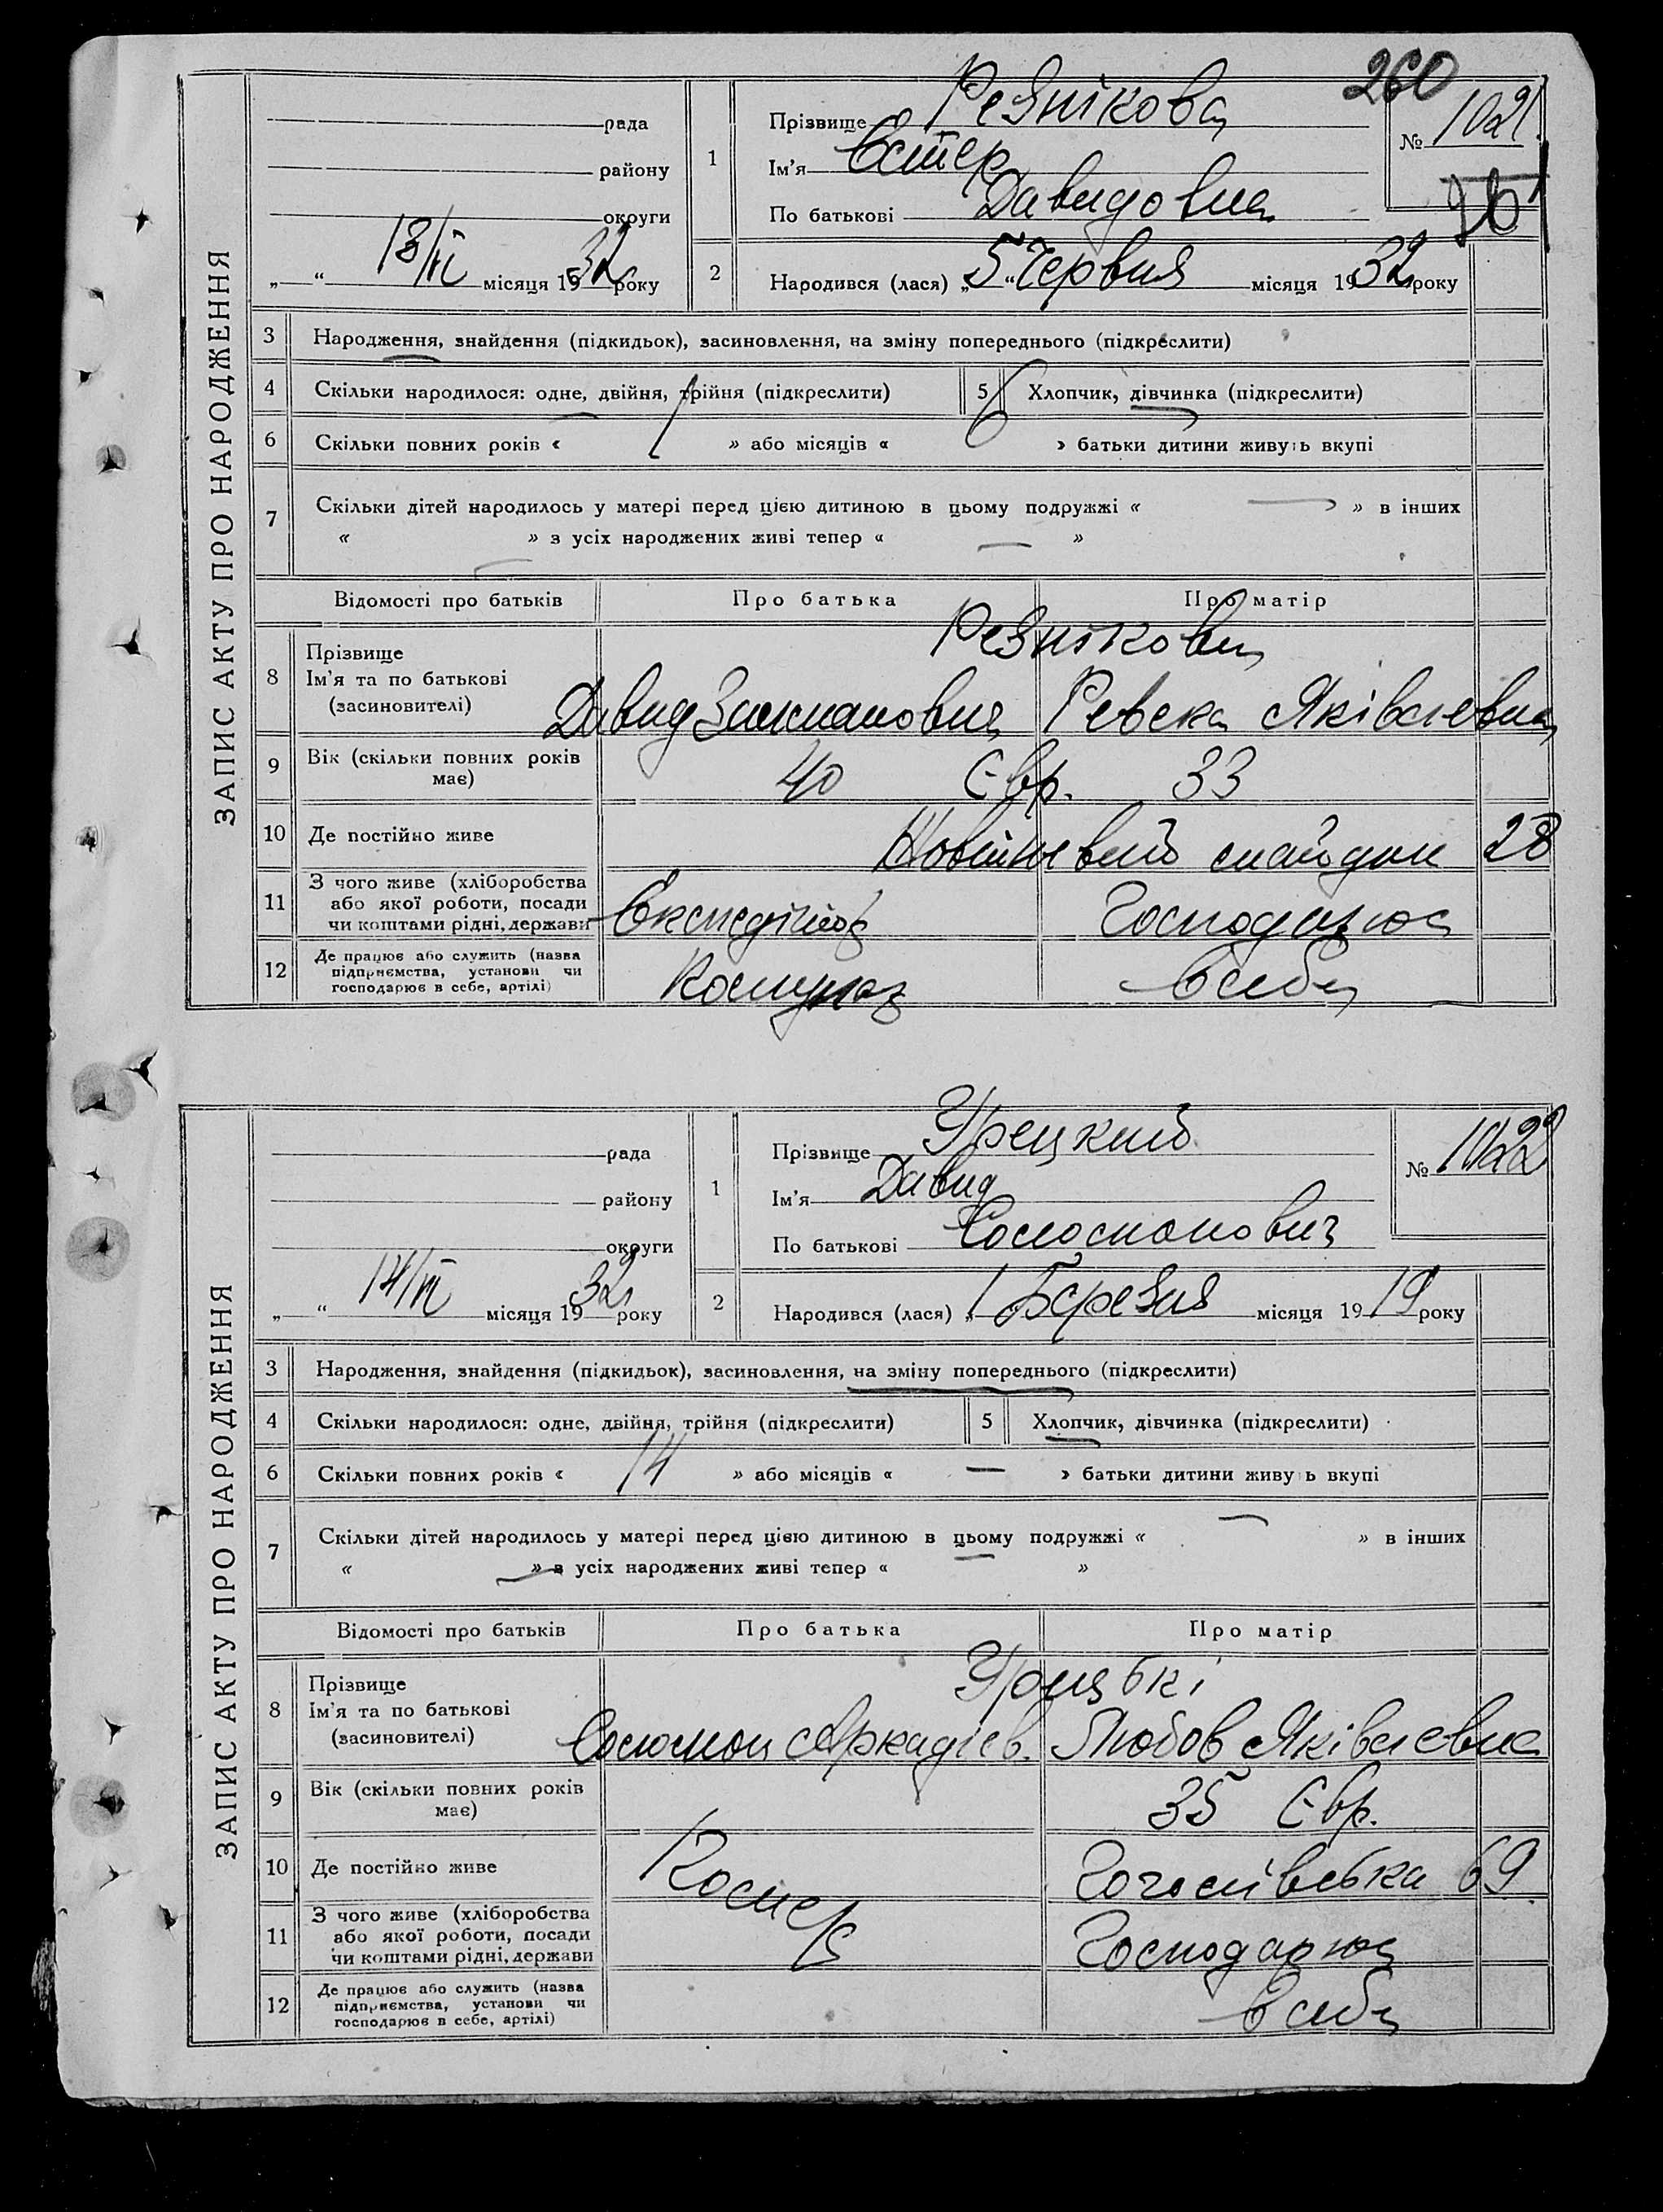 260
ЗАПИС АКТУ ПРО НАРОДЖЕННЯ
рада
району
округи
„ “ 13/VI місяця 1932 року
1
Прізвище Резнікова
Ім'я Естер
По батькові Давидовна
№ 1021.
2
Народився (лася) „5“ Червня місяця 1932 року
3 Народження, знайдення (підкидьок), засиновлення, на зміну попереднього (підкреслити)
4 Скільки народилося: одне, двійня, трійня (підкреслити) 5 Хлопчик, дівчинка (підкреслити)
6 Скільки повних років « 1 » або місяців « 6 » батьки дитини живуть вкупі
7 Скільки дітей народилось у матері перед цією дитиною в цьому подружжі « — » в інших
« — » з усіх народжених живі тепер « — »
Відомості про батьків Про батька Про матір
8 Прізвище
Ім'я та по батькові
(засиновителі)
Резнікови
Давид Ревека Яківлевна
9 Вік (скільки повних років має) 40 Євр. 33
10 Де постійно живе 28
11 З чого живе (хліборобства
або якої роботи, посади
чи коштами рідні, держави
Експедітор Господарює
12 Де працює або служить (назва
підприємства, установи чи
господарює в себе, артілі)
в себе
ЗАПИС АКТУ ПРО НАРОДЖЕННЯ
рада
району
округи
„ “ 14/VI місяця 1932 року
1
Прізвище Урецкий
Ім'я Давид
По батькові Соломонович
№ 1022
2
Народився (лася) „1 Березня місяця 1919 року
3 Народження, знайдення (підкидьок), засиновлення, на зміну попереднього (підкреслити)
4 Скільки народилося: одне, двійня, трійня (підкреслити) 5 Хлопчик, дівчинка (підкреслити)
6 Скільки повних років « 14 » або місяців « — » батьки дитини живуть вкупі
7 Скільки дітей народилось у матері перед цією дитиною в цьому подружжі « — » в інших
« — » з усіх народжених живі тепер « — »
Відомості про батьків Про батька Про матір
8 Прізвище
Ім'я та по батькові
(засиновителі)
Урецькі
Соломон Аркадіев. Любов Яківлевна
9 Вік (скільки повних років має) 35 Євр.
10 Де постійно живе Гоголівська 69
11 З чого живе (хліборобства
або якої роботи, посади
чи коштами рідні, держави
Помер
Господарює
12 Де працює або служить (назва
підприємства, установи чи
господарює в себе, артілі)
в себе